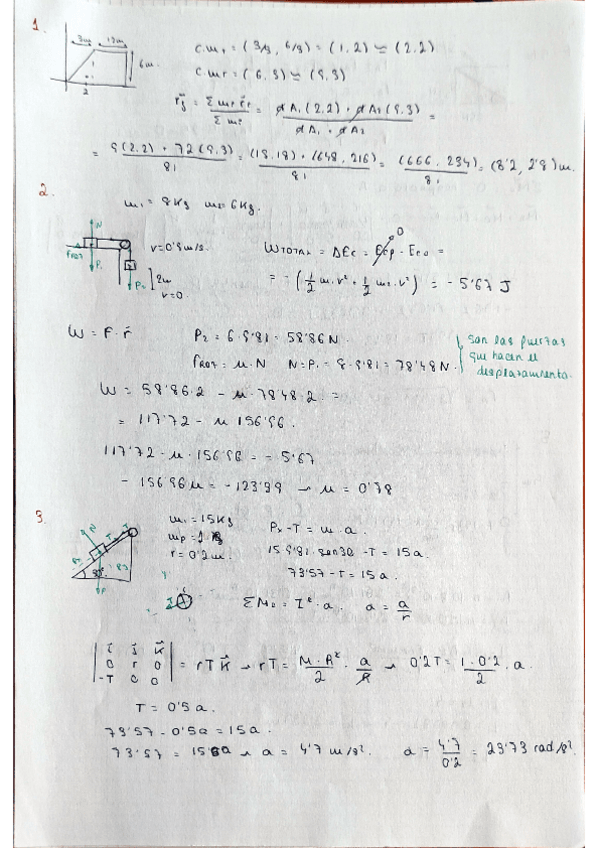 1.
3m 12m 6m
1
2
c.m₁ = (3/3, 6/3) = (1, 2) ≃ (2, 2)
c.m₂ = (6, 3) ≃ (9, 3)
= 9(2,2) + 72(9,3) / 81 = (18,18) + (648, 216) / 81 = (666, 234) / 81 = (8'2, 2'8) m.
2.
m₁ = 8 Kg m₂ = 6 Kg.
N
FROZ P₁ v = 0'9 m/s.
P₂ 2m
v = 0.
WTOTAL = ΔEc = Ecf - Ec0 =
= - (1/2 m₁ v² + 1/2 m₂ v²) = - 5'67 J
W = F · r P₂ = 6 · 9'81 = 58'86 N.
FROZ = μ · N N = P₁ = 8 · 9'81 = 78'48 N.
son las fuerzas
que hacen el
desplazamiento.
W = 58'86 · 2 - μ · 78'48 · 2 =
= 117'72 - μ 156'96.
117'72 - μ · 156'96 = - 5'67
- 156'96 μ = - 123'39 → μ = 0'78
3.
m₁ = 15 Kg
r = 0'2 m.
Px - T = m · a.
15 · 9'81 · sen30 - T = 15a.
73'57 - T = 15a.
N T T
30°
P
i j k
0 r 0
-T 0 0
= rT k → rT = M · R² / 2 · a / R → 0'2T = 1 · 0'2 / 2 · a.
T = 0'5a.
73'57 - 0'5a = 15a.
73'57 = 15'5a → a = 4'7 m/s². α = 4'7 / 0'2 = 23'73 rad/s².